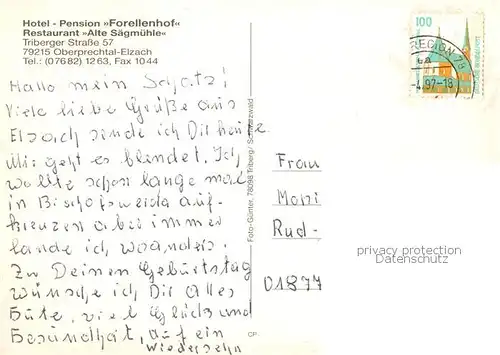 Hotel - Pension »Forellenhof«
Restaurant »Alte Sägmühle«
Triberger Straße 57
79215 Oberprechtal-Elzach
Tel.: (07682) 1263, Fax 1044
Hallo mein Schatz!
Viele liebe Grüße aus
Elzach sende ich Dir heute.
Mir geht es blendet. Ich
wollte schon lange mal
in Bischofswerda auf-
kreuzen aber immer
lande ich woanders.
Zu Deinen Geburtstag
wünsche ich Dir Alles
Gute, viel Glück und
Gesundheit, auf ein
Wiedersehn
Foto-Günter, 78098 Triberg/ Schwarzwald
CP
100
REGION 78
-4.97-18
Frau
Moni
Rud-
privacy protection
Datenschutz
01877